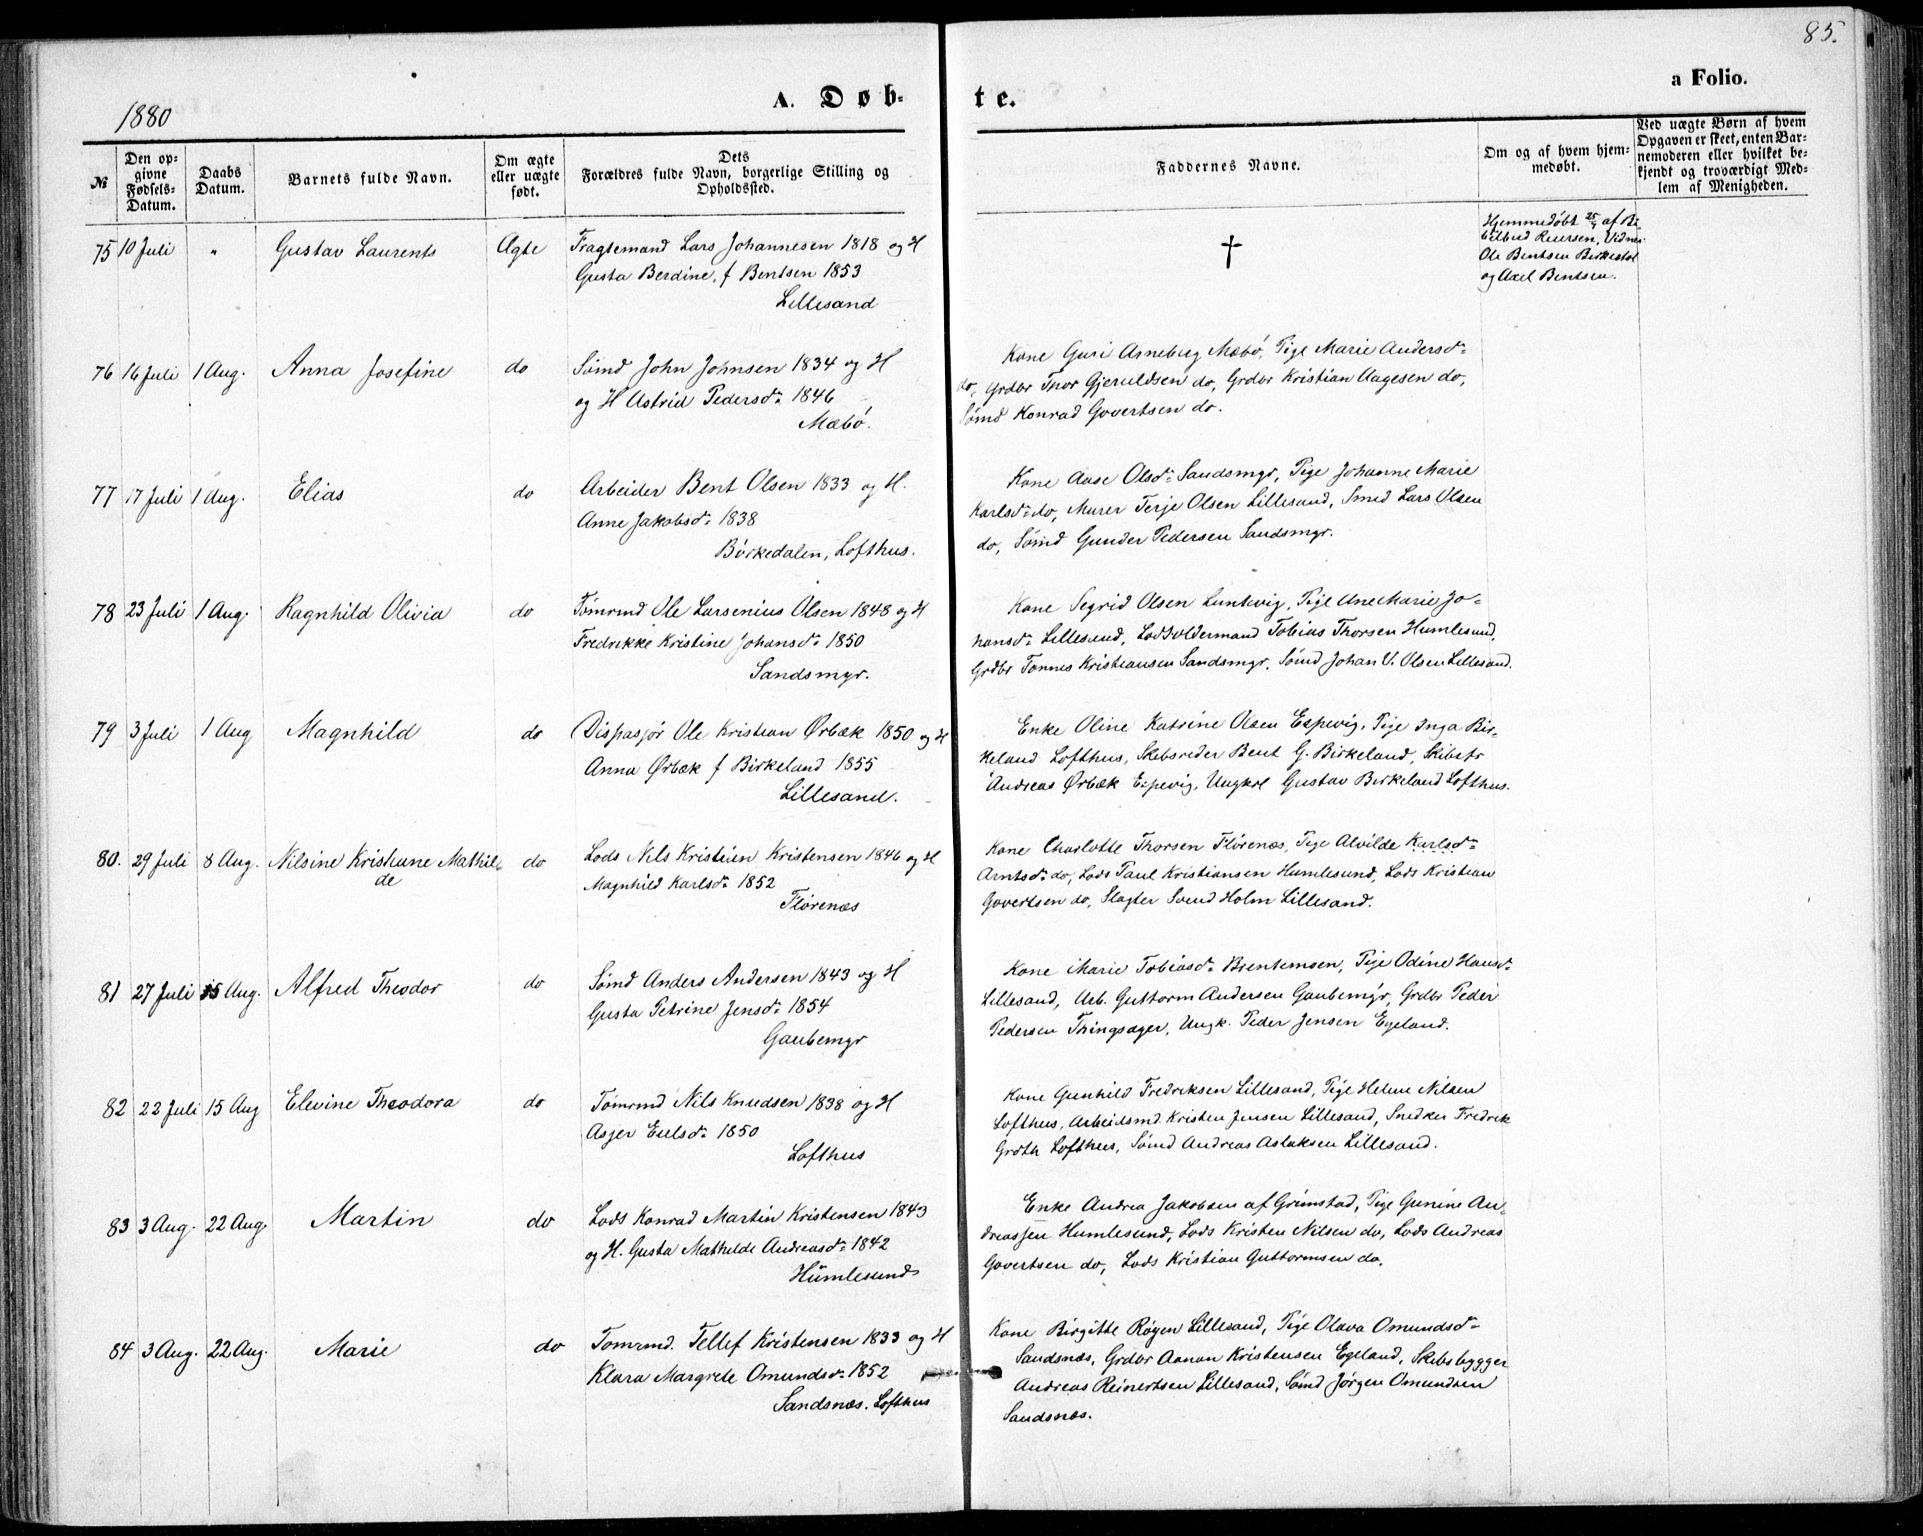 85.
a Folio.
1880
A. Døb-
te.
№
Den op-
givne
Fødsels-
Datum.
Daabs
Datum.
Barnets fulde Navn.
Om ægte
eller uægte
født.
Dets
Forældres fulde Navn, borgerlige Stilling og
Opholdssted.
Faddernes Navne.
Om og af hvem hjem-
medøbt.
Ved uægte Børn af hvem
Opgaven er skeet, enten Bar-
nemoderen eller hvilket be-
kjendt og troværdigt Med-
lem af Menigheden.
75 10 Juli " Gustav Laurents Ægte
Fragtemand Lars Johannesen 1818 og H
Gusta Berdine, f Bentsen 1853
Lillesand
†
Hjemmedøbt 25/7 af
Ole Bentsen
og Axel Bentsen.
76 16 Juli 1 Aug. Anna Josefine do
Sømd John Johnsen 1834 og H
og H Astrid Pedersd: 1846
Mæbø.
Kone Guri Arneberg Mæbø, Pige Marie Andersd:
do, Grdbr Thor Gjeruldsen do, Grdbr Kristian Aagesen do,
Sømd Konrad Govertsen do.
77 17 Juli 1 Aug. Elias do
Arbeider Bent Olsen 1833 og H.
Anne Jakobsd: 1838
Börkedalen, Lofthus.
Kone Aase Olsd: Sandsmyr, Pige Johanne Marie
Karlsd: do, Murer Terje Olsen Lillesand, Smed Lars Olsen
do, Sømd Gunder Pedersen Sandsmyr.
78 23 Juli 1 Aug. Ragnhild Olivia do
Tömrmd Ole Larsenius Olsen 1848 og H
Fredrikke Kristine Johansd: 1850
Sandsmyr.
Kone Segrid Olsen Luntevig, Pige Une Marie Jo-
hansd: Lillesand, Lodsoldermand Tobias Thorsen Humlesund,
Grdbr Tønnes Kristiansen Sandsmyr, Sømd Johan V. Olsen Lillesand.
79 3 Juli 1 Aug Magnhild do
Dispasjør Ole Kristian Ørbæk 1850 og H
Anna Ørbæk f Birkeland 1855
Lillesand.
Enke Oline Katrine Olsen Espevig, Pige Inga Bir-
keland Lofthus, Skibsreder Bent G. Birkeland, Skibsfr
Andreas Ørbæk Espevig, Ungkrl Gustav Birkeland Lofthus.
80. 29 Juli 8 Aug. Nilsine Kristiane Mathil-
de do
Lods Nils Kristian Kristensen 1846 og H
Magnhild Karlsd: 1852
Flørenæs
Kone Charlotte Thorsen Flørenæs, Pige Alvilde Karlsd:
Arntsd: do, Lods Paul Kristiansen Humlesund, Lods Kristian
Govertsen do, Slagter Svend Holm Lillesand.
81 27 Juli 15 Aug. Alfred Theodor do
Sømd Anders Andersen 1843 og H
Gusta Petrine Jensd: 1854
Gaubemyr
Kone Marie Tobiasd: Brentemoen, Pige Odine Hansd:
Lillesand, Arb. Guttorm Andersen Gaubemyr, Grdbr Peder
Pedersen Thingsager, Ungk. Peder Jensen Egeland.
82 22 Juli 15 Aug Elevine Theodora do
Tømrmd Nils Knudsen 1838 og H
Asjer Eilsd: 1850
Lofthus
Kone Gunhild Fredriksen Lillesand, Pige Helene Nilsen
Lofthus, Arbeidsmd. Kristen Jensen Lillesand, Snedker Fredrik
Groth Lofthus, Sømd Andreas Aslaksen Lillesand.
83 3 Aug. 22 Aug. Martin do
Lods Konrad Martin Kristensen 1843
og H. Gusta Mathilde Andreasd: 1842
Humlesund
Enke Andrea Jakobsen af Grimstad, Pige Gunine An-
dreassen Humlesund, Lods Kristen Nilsen do, Lods Andreas
Govertsen do, Lods Kristian Guttormsen do.
84 3 Aug. 22 Aug. Marie do
Tomrmd. Tellef Kristensen 1833 og H
Klara Margrete Omundsd: 1852
Sandsnæs. Lofthus
Kone Birgitte Røyen Lillesand, Pige Olava Omundsd:
Sandsnæs, Grdbr Aanon Kristensen Egeland, Skibsbygger
Andreas Reinertsen Lillesand, Sømd Jørgen Omundsen
Sandsnæs.